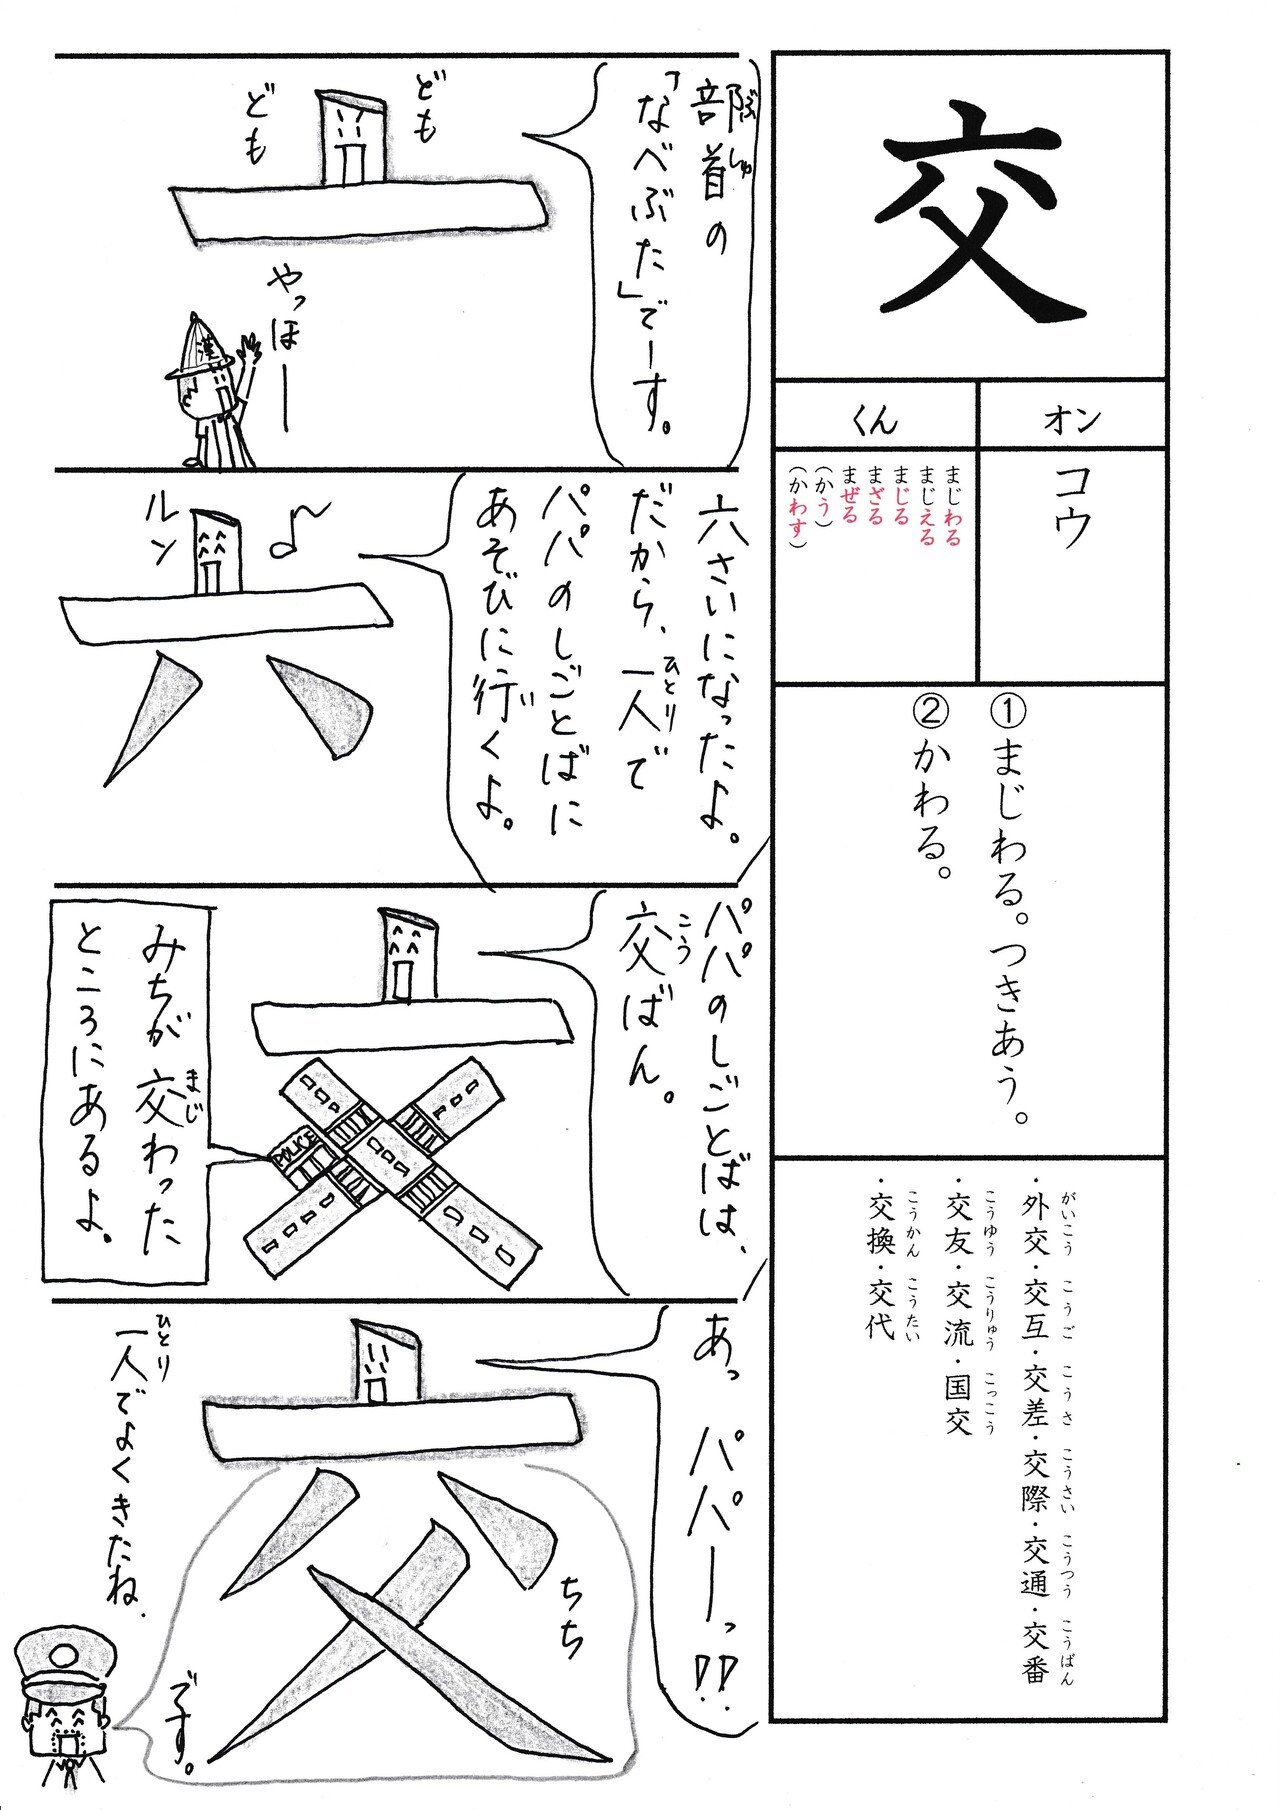 交
オン
コウ
くん
まじわる
まじえる
まじる
まざる
まぜる
（かう）
（かわす）
①まじわる。つきあう。
②かわる。
・外交・交互・交差・交際・交通・交番
がいこう こうご こうさ こうさい こうつう こうばん
・交友・交流・国交
こうゆう こうりゅう こっこう
・交換・交代
こうかん こうたい
部首の
ぶしゅ
「なべぶた」でーす。
ども
ども
やっほー
漢
六さいになったよ。
だから、一人で
ひとり
パパのしごとばに
あそびに行くよ。
い
♪
ルン
パパのしごとばは、
交ばん。
こう
POLICE
みちが交わった
まじ
ところにあるよ。
あっ パパーっ!!
ちち
です。
一人でよくきたね。
ひとり